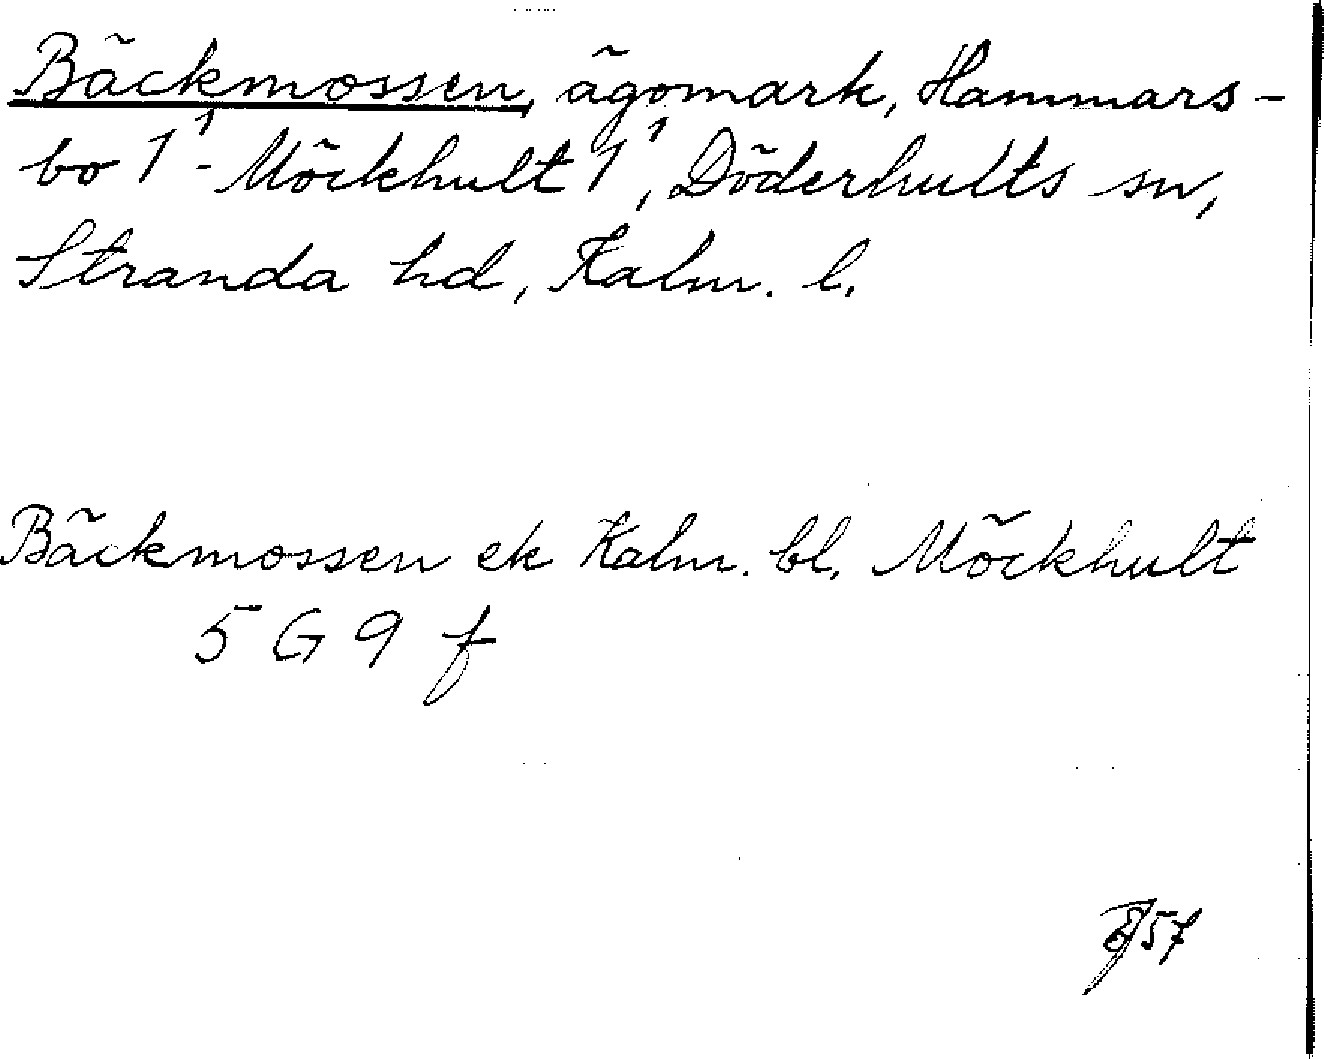 Bäckmossen, ägomark, Hammars-
bo 1¹ - Möckhult 1¹, Döderhults sn,
Stranda hd, Kalm. l.
Bäckmossen ek Kalm. bl. Möckhult
5 G 9 f
57